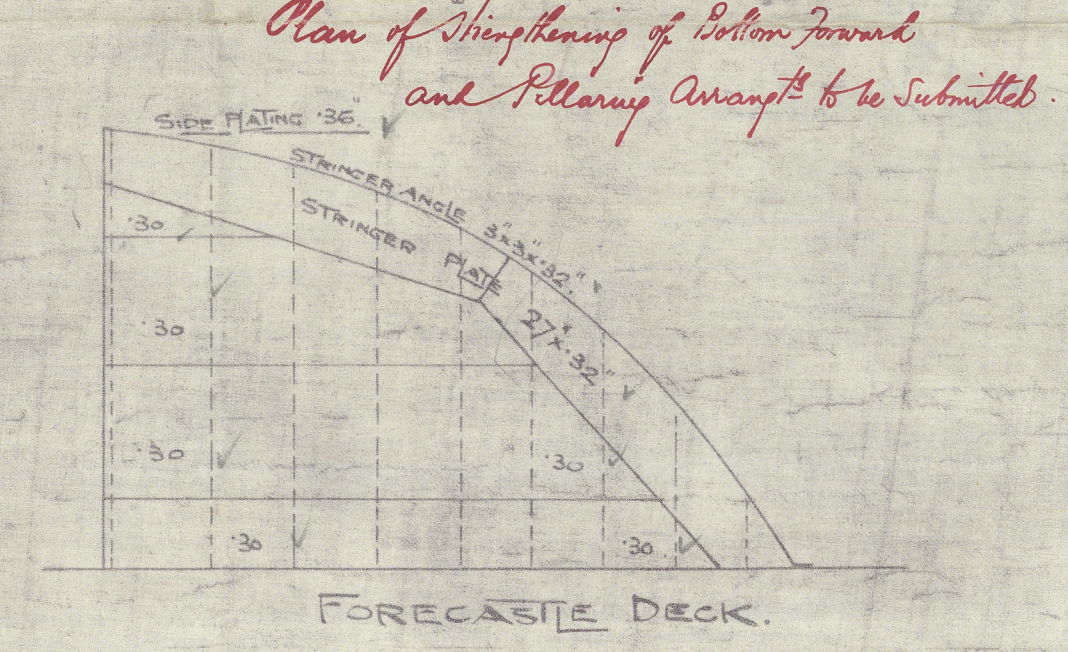 Plan of Strengthening of Bottom Forward
and Pillaring Arrangts to be Submitted.
SIDE PLATING .36"
STRINGER ANGLE 3"x3"x.32"
STRINGER PLATE
27"x.32"
.30
.30
.30
.30
.30
.30
FORECASTLE DECK.